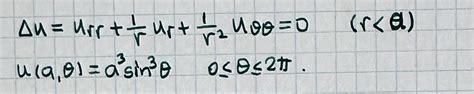 Δu = u_rr + 1/r u_r + 1/r² u_θθ = 0 (r < a)
u(a,θ) = a³ sin³θ 0 ≤ θ ≤ 2π.